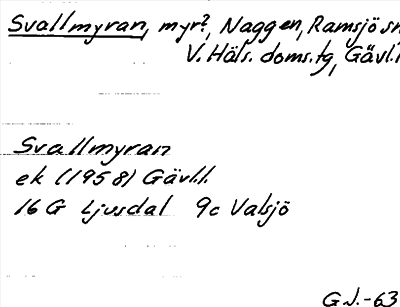 Svallmyran, myr?, Naggen, Ramsjö sn
V. Häls. doms.tg, Gävl.l
Svallmyran
ek (1958) Gävl.l.
16 G Ljusdal 9c Valsjö
G J.-63